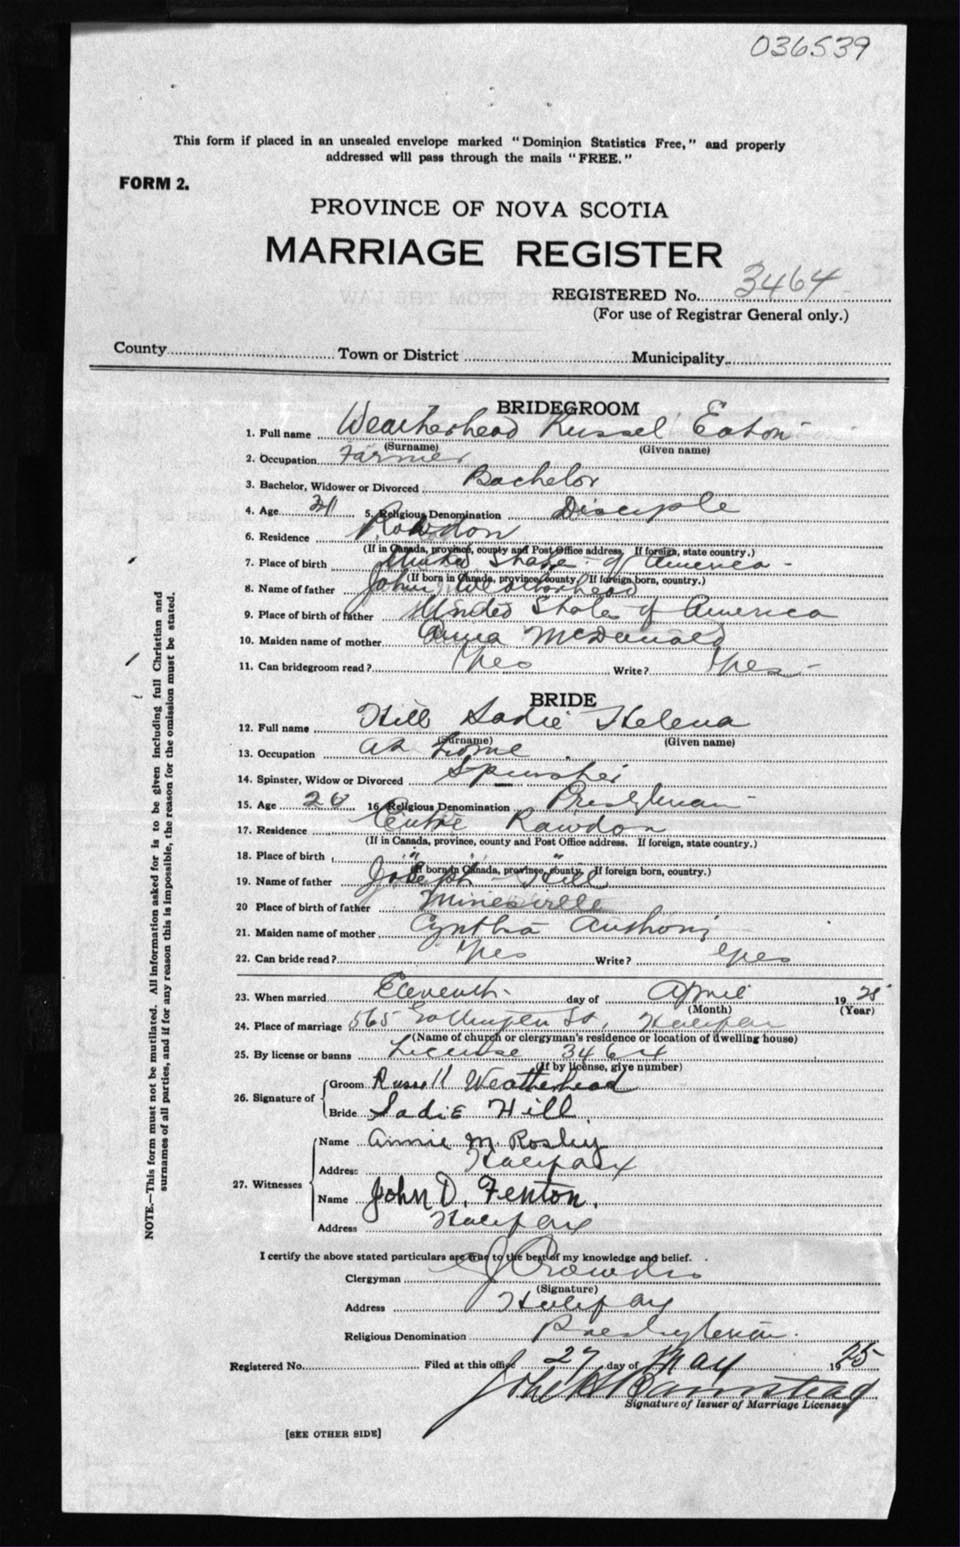 036539
This form if placed in an unsealed envelope marked "Dominion Statistics Free," and properly
addressed will pass through the mails "FREE."
FORM 2.
PROVINCE OF NOVA SCOTIA
MARRIAGE REGISTER
REGISTERED No. 3464
(For use of Registrar General only.)
County Town or District Municipality
BRIDEGROOM
1. Full name Weatherhead Russel Eaton
(Surname) (Given name)
2. Occupation Farmer
3. Bachelor, Widower or Divorced Bachelor
4. Age 31 5. Religious Denomination Disciple
6. Residence Rawdon
(If in Canada, province, county and Post Office address. If foreign, state country.)
7. Place of birth United State of America
(If born in Canada, province, county. If foreign born, country.)
8. Name of father John Weatherhead
9. Place of birth of father United State of America
10. Maiden name of mother Annie McDonald
11. Can bridegroom read? Yes Write? Yes
BRIDE
12. Full name Hill Sadie Helena
(Surname) (Given name)
13. Occupation at home
14. Spinster, Widow or Divorced Spinster
15. Age 20 16 Religious Denomination Presbyterian
17. Residence Centre Rawdon
(If in Canada, province, county and Post Office address. If foreign, state country.)
18. Place of birth " " "
(If born in Canada, province, county. If foreign born, country.)
19. Name of father Joseph Hill
20 Place of birth of father Minesville
21. Maiden name of mother Cyntha Anthony
22. Can bride read? Yes Write? Yes
23. When married Eleventh day of April 1925
(Month) (Year)
24. Place of marriage 565 Gottingen St, Halifax
(Name of church or clergyman's residence or location of dwelling house)
25. By license or banns License 3464
(If by license, give number)
26. Signature of
Groom Russell Weatherhead
Bride Sadie Hill
27. Witnesses
Name Annie M. Rosley
Address Halifax
Name John D. Fenton.
Address Halifax
I certify the above stated particulars are true to the best of my knowledge and belief.
Clergyman Crowdis
(Signature)
Address Halifax
Religious Denomination Presbyterian.
Registered No. Filed at this office 27 day of May 1925
John H Barnstead
Signature of Issuer of Marriage Licenses
[SEE OTHER SIDE]
NOTE.—This form must not be mutilated. All information asked for is to be given including full Christian and
surnames of all parties, and if for any reason this is impossible, the reason for the omission must be stated.